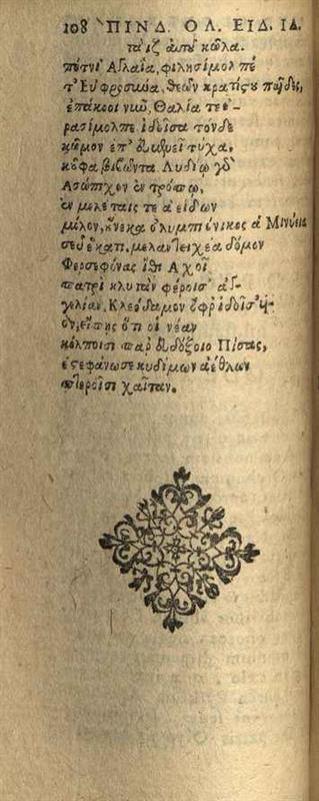 108 ΠΙΝΔ. ΟΛ. ΕΙΔ. ΙΔ.
τὰ ιζ κῶλα.
πότνι' Αγλαΐα, φιλησίμολπέ
τ' Εὐφροσύνα, θεῶν κρατίστου παῖδες,
ἐπάκοοι νῦν, Θαλία τε ἐ-
ρασίμολπε ἰδοῖσα τόνδε
κῶμον ἐπ' εὐμενεῖ τύχᾳ,
κοῦφα βιβῶντα. Λυδίῳ γὸ
Ασώπιχον ἐν τρόπῳ,
ἐν μελέταις τε ἀείδων
μόλον, οὕνεκα ὀλυμπιόνικος ἁ Μινύεια
σεῦ ἕκατι. μελαντειχέα δόμον
Φερσεφόνας ἴθι Αχοῖ
πατρὶ κλυτὰν φέροισ' ἀγ-
γελίαν, Κλεόδαμον ὄφρ' ἰδοῖσ' ὑ-
ὸν, εἴπῃς ὅτι οἱ νέαν
κόλποισι παρ' εὐδόξοιο Πίσας,
ἐστεφάνωσε κυδίμων ἀέθλων
πτεροῖσι χαίταν.